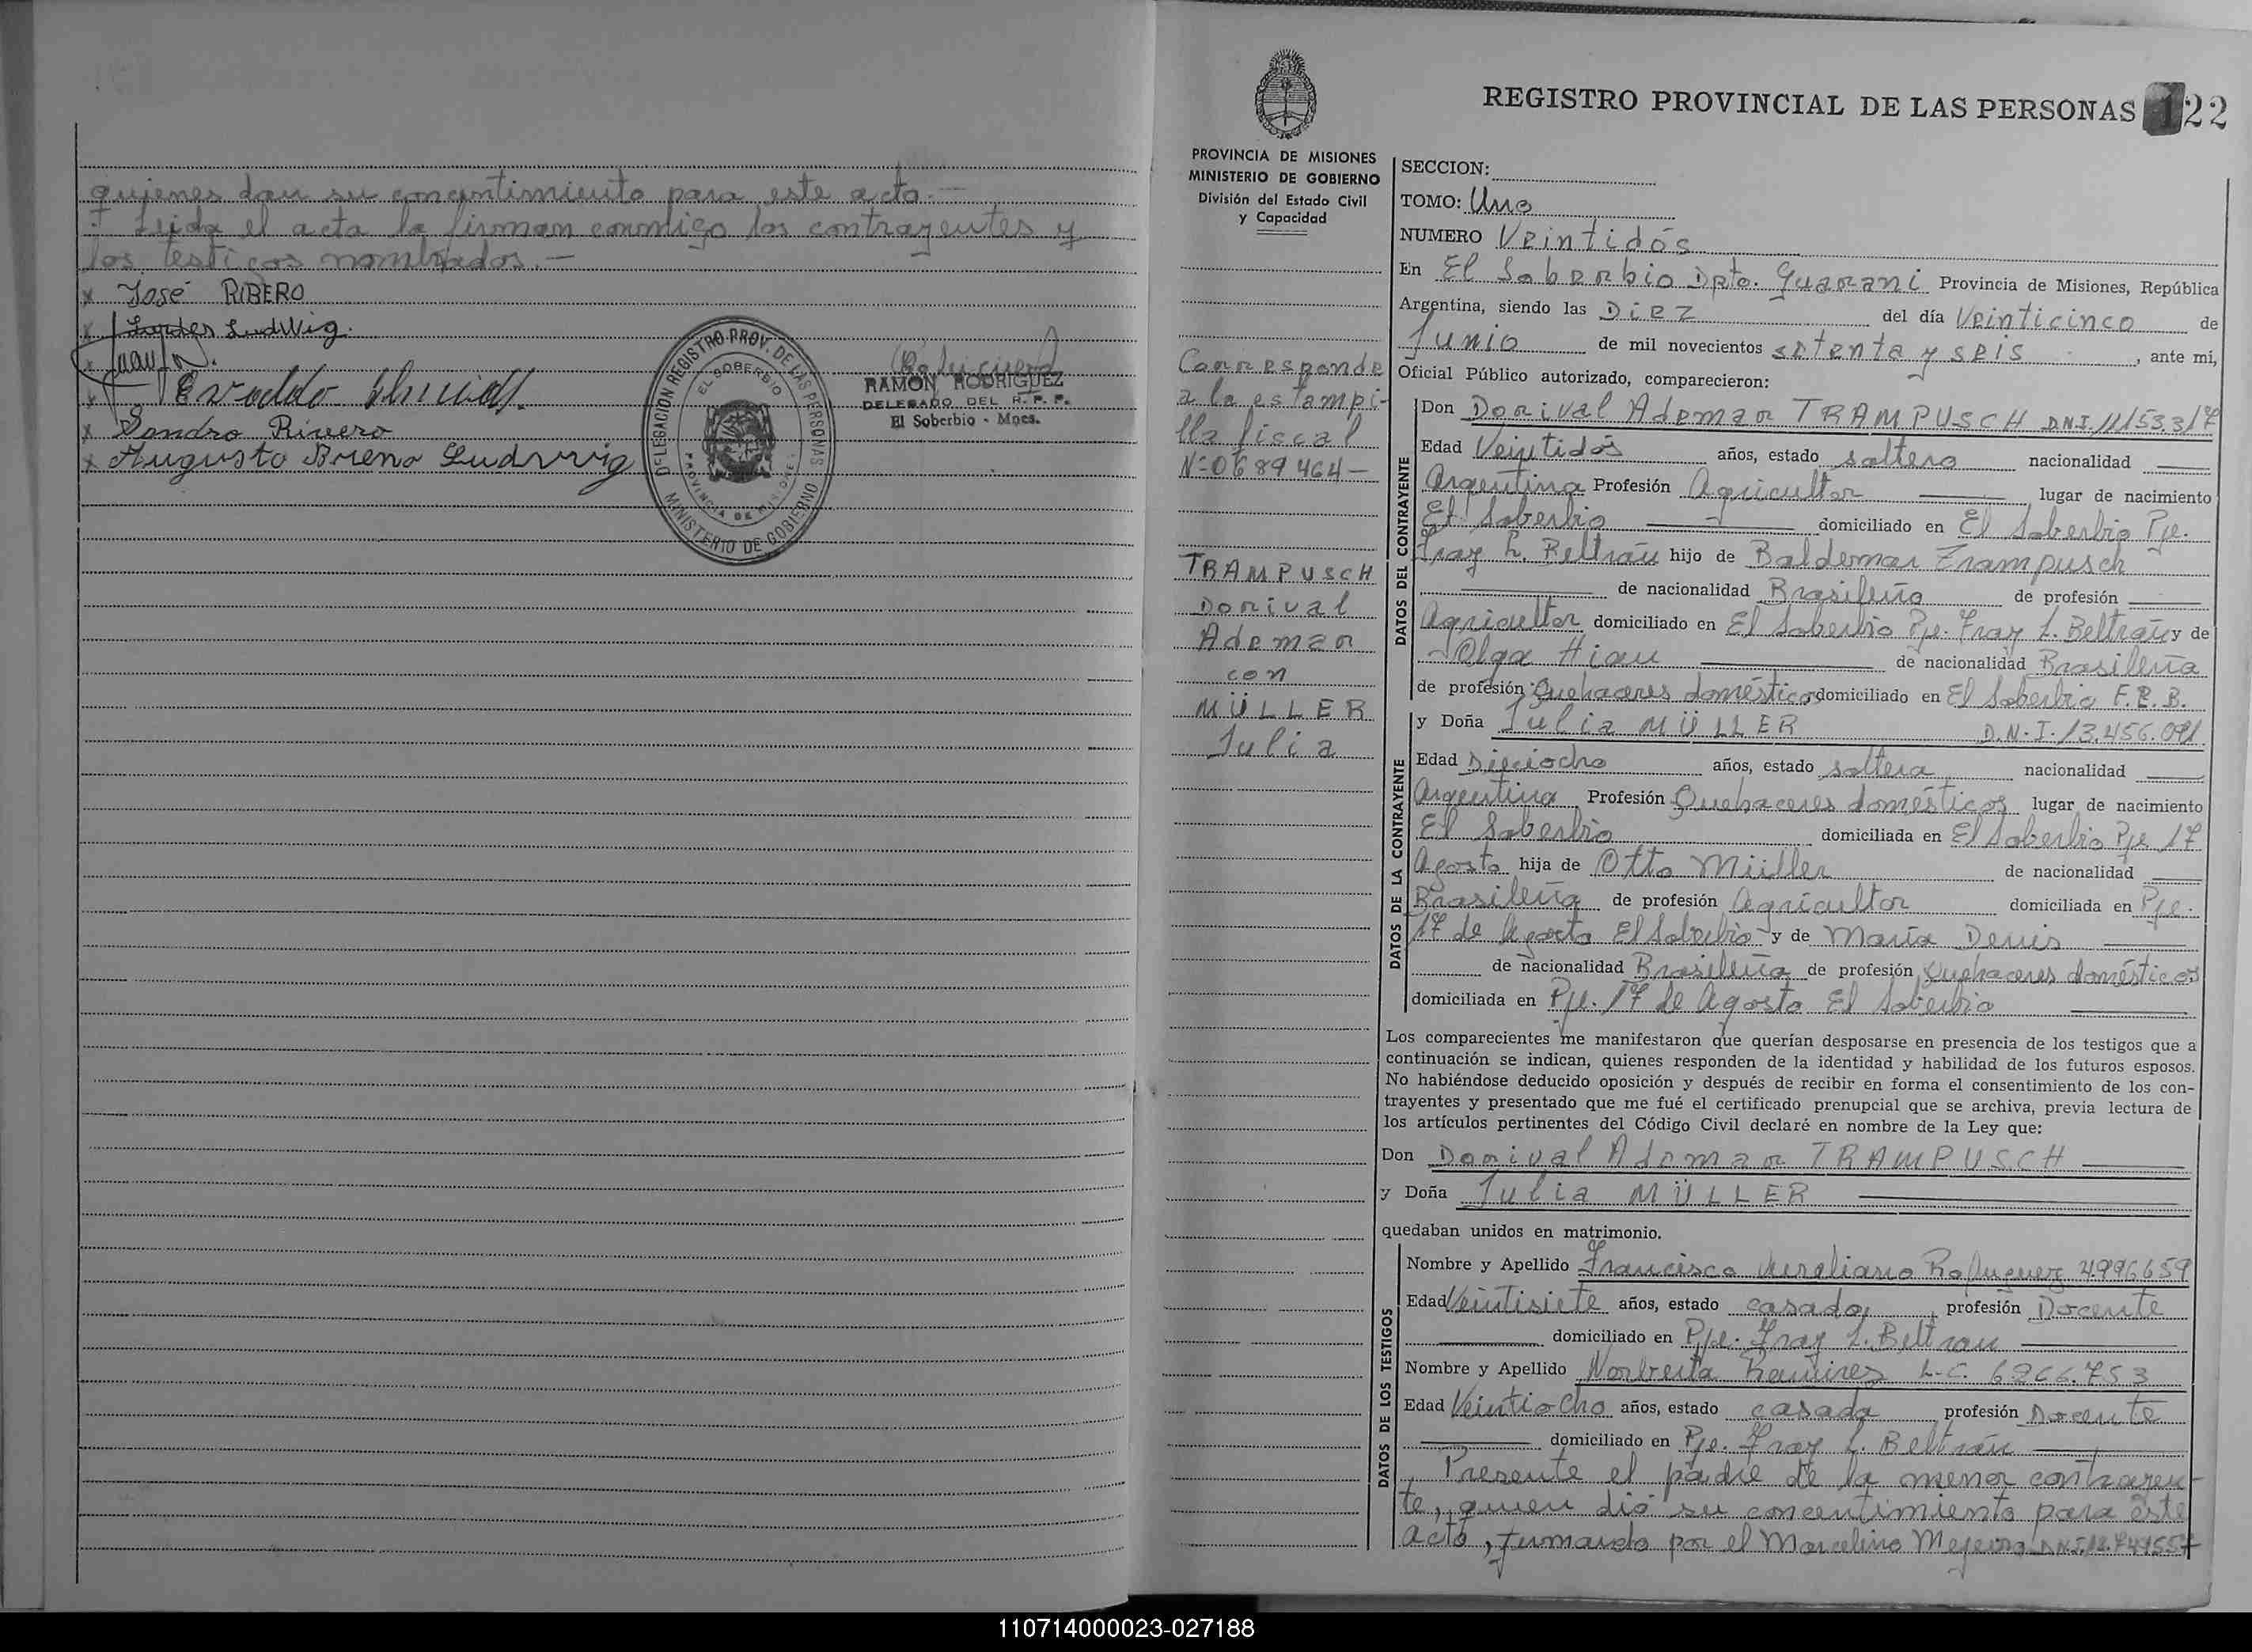 quienes dan su concentimiento para este acto.—
Leida el acta la firman conmigo los contrayentes y
los testigos nombrados.—
x José RIBERO
x Lurdes Ludwig.
x
x Evaldo
x Sandro Rivero
x Augusto Breno Ludwig
DELEGACION REGISTRO PROV. DE LAS PERSONAS
EL SOBERBIO
PROVINCIA DE MISIONES
MINISTERIO DE GOBIERNO
RAMÓN RODRIGUEZ
DELEGADO DEL R. P. P.
El Soberbio - Mnes.
REGISTRO PROVINCIAL DE LAS PERSONAS 122
PROVINCIA DE MISIONES
MINISTERIO DE GOBIERNO
División del Estado Civil
y Capacidad
Corresponde
a la estampi-
lla fiscal
N=0689464—
TRAMPUSCH
Dorival
Ademar
con
MÜLLER
Julia
SECCION:
TOMO: Uno
NUMERO Veintidós
En El Soberbio Dpto. Guaraní Provincia de Misiones, República
Argentina, siendo las Diez del día Veinticinco de
Junio de mil novecientos setenta y seis, ante mi,
Oficial Público autorizado, comparecieron:
DATOS DEL CONTRAYENTE
Don Dorival Ademar TRAMPUSCH D.N.I. 11153317
Edad Veintidós años, estado soltero nacionalidad
Argentina Profesión Agricultor lugar de nacimiento
El Soberbio domiciliado en El Soberbio Pje.
Fray L. Beltrán hijo de Baldemar Trampusch
de nacionalidad Brasileña de profesión
Agricultor domiciliado en El Soberbio Pje. Fray L. Beltrán y de
Olga Hiau de nacionalidad Brasileña
de profesión Quehaceres domésticos domiciliado en El Soberbio F. L. B.
DATOS DE LA CONTRAYENTE
y Doña Julia MÜLLER D.N.I. 13.456.091
Edad Dieciocho años, estado soltera nacionalidad
Argentina Profesión Quehaceres domésticos lugar de nacimiento
El Soberbio domiciliada en El Soberbio Pje 17
Agosto hija de Otto Müller de nacionalidad
Brasileña de profesión Agricultor domiciliada en Pje.
17 de Agosto El Soberbio y de María Denis
de nacionalidad Brasileña de profesión Quehaceres domésticos
domiciliada en Pje. 17 de Agosto El Soberbio
Los comparecientes me manifestaron que querían desposarse en presencia de los testigos que a
continuación se indican, quienes responden de la identidad y habilidad de los futuros esposos.
No habiéndose deducido oposición y después de recibir en forma el consentimiento de los con-
trayentes y presentado que me fué el certificado prenupcial que se archiva, previa lectura de
los artículos pertinentes del Código Civil declaré en nombre de la Ley que:
Don Dorival Ademar TRAMPUSCH
y Doña Julia MÜLLER
quedaban unidos en matrimonio.
DATOS DE LOS TESTIGOS
Nombre y Apellido Francisco Aureliano 4996659
Edad Veintisiete años, estado casado, profesión Docente
domiciliado en Pje. Fray L. Beltran
Nombre y Apellido Norberta Ramirez L.C. 6266.753
Edad Veintiocho años, estado casada profesión Docente
domiciliado en Pje. Fray L. Beltrán
Presente el padre de la menor contrayen-
te, quien dió su concentimiento para este
acto, firmando por el Marcelino
110714000023-027188